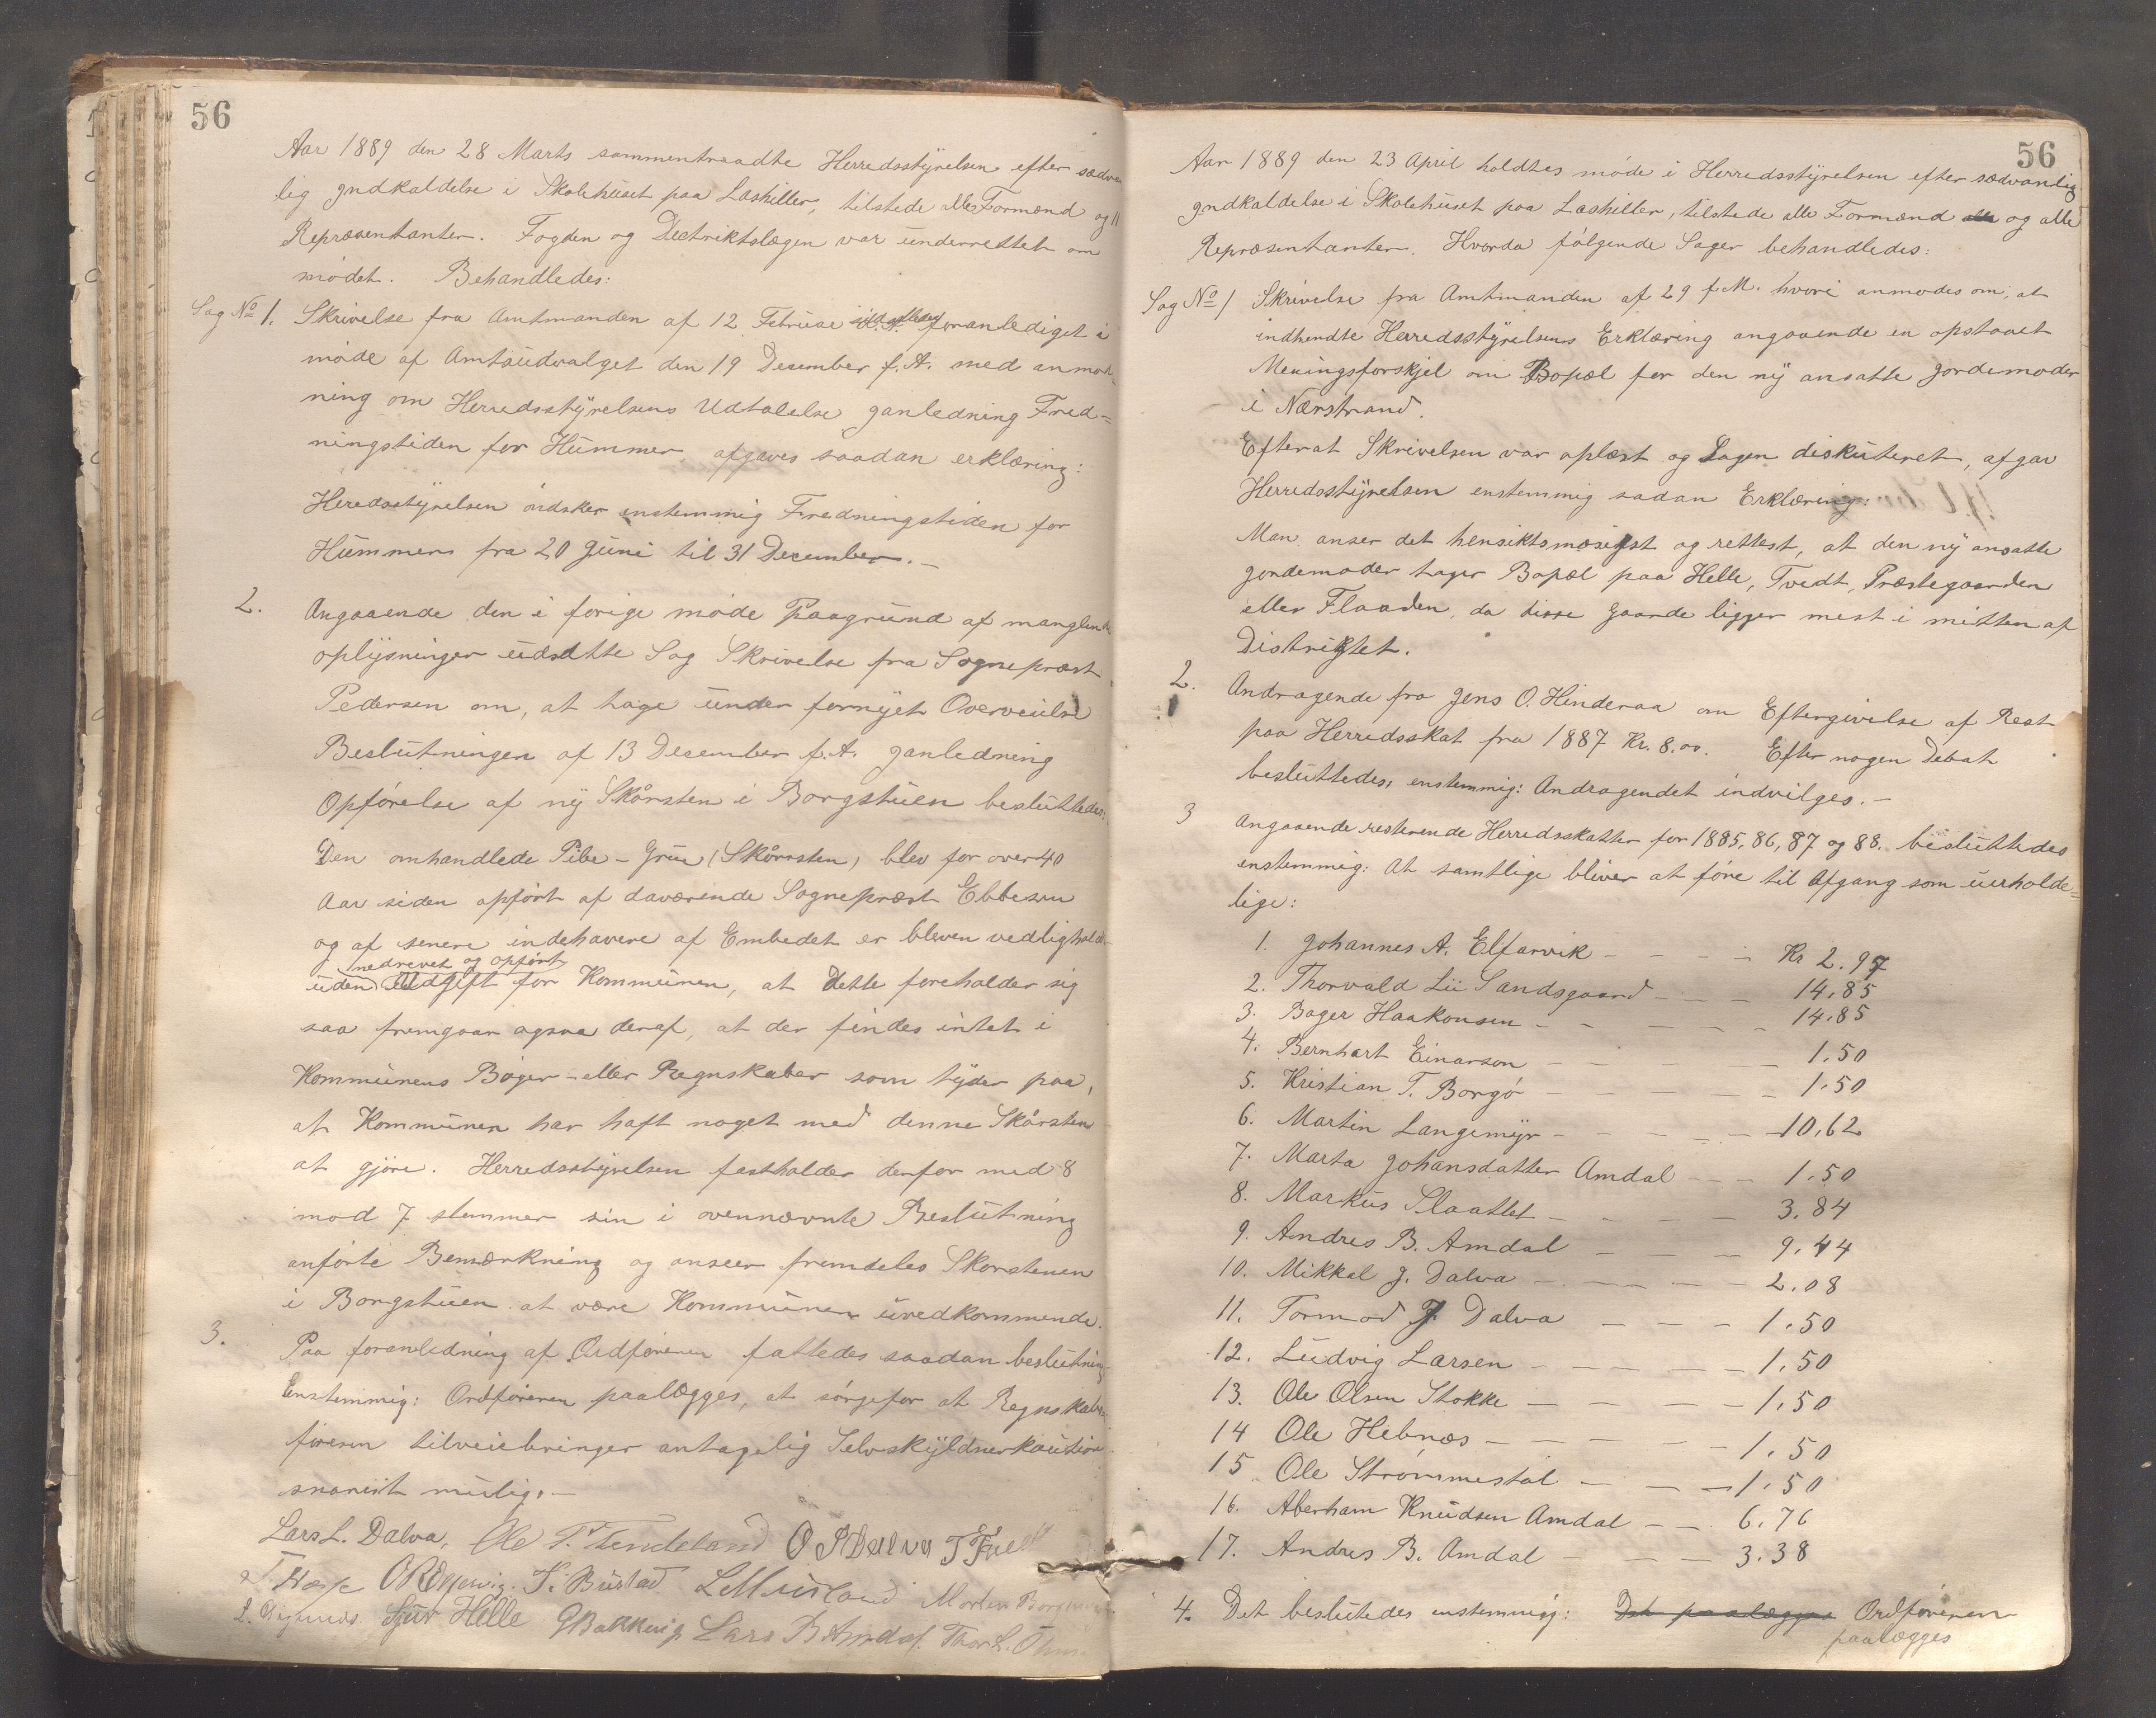 56
Aar 1889 den 28 Marts sammentraadte Herredsstyrelsen efter sædvan
lig Indkaldelse i Skolehuset paa Læshiller, tilstede alle Formænd og 11
Repræsentanter. Fogden og Distriktslægen var underrettet om
mødet. Behandledes:
Sag No 1. Skrivelse fra Amtmanden af 12 Februar foranlediget i
møde af Amtsudvalget den 19 Desember f. A. med anmod-
ning om Herredsstyrelsens Udtalelse ianledning Fred=
ningstiden for Hummer, afgaves saadan erklæring:
Heredsstyrelsen ønsker enstemmig Fredningstiden for
Hummeren fra 20 Juni til 31 December.-
2. Angaaende den i forige møde Paagrund af manglende
oplysninger udsatte Sag Skrivelse fra Sogneprest
Pedersen om, at tage under fornyet Overveielse
Beslutningen af 13 Desember f. A. ianledning
Opførelse af ny Skårsten i Borgstuen besluttedes:
Den omhandlede Pibe-Grue (Skårrsten) blev for over 40
Aar siden opført af daværende Sogneprest Ebbesen
og af senere indehavere af Embedet er bleven vedligholdt-
nedrevet og opført
uden Udgift for Kommunen, at Dette foreholder sig
saa fremgaar ogsaa deraf, at der findes intet i
Kommunens Bøger-eller Regnskaber som tyder paa,
at Kommunen har haft noget med denne Skårsten
at gjøre. Herredsstyrelsen fastholder derfor med 8
mod 7 stemmer sin i ovennævnte Beslutning
anførte Bemærkning og anseer fremdeles Skorstenen
i Borgstuen at være Kommunen uvedkommende.
3. Paa foranledning af Ordføreren fattedes saadan beslutning
Enstemmig: Ordføreren paalægges, at sørgefor at Regnskabs-
føreren tilveiebringer antagelig Selvskyldnerkaution
snarest mulig.-
Lars L. Dalva, Ole T. Tendeland O S Dalva
S. Bustad L Musland Morten
Sjur Helle G Bakkevig Lars B Amdal. Thor L.
56
Aar 1889 den 23 April holdtes møde i Herredsstyrelsen efter sædvanlig
Indkaldelse i Skolehuset paa Læshiller, tilstede alle Formænd alle og alle
Repræsentanter. Hvorda følgende Sager behandledes:
Sag No 1 Skrivelse fra Amtmanden af 29 f. M. hvori anmodes om, at
indhendte Herredsstyrelsens Erklæring angaaende en opstaaet
Meningsforskjel om Bopæl for den ny ansatte Jordemoder
i Nærstrand.
Efterat Skrivelsen var oplæst og Sagen diskuteret, afgav
Herredsstyrelsen enstemmig sadan Erklæring:
Man anser det hensiktsmæsigst og rettest, at den ny ansatte
Jordemoder tager Bopæl paa Helle, Tvedt, Præstegaarden
eller Flaaden, da disse Gaarde ligger mest i mitten af
Distriktet.
2. Andragende fra Jens O. Hinderaa om Eftergivelse af Rest
paa Herredsskat fra 1887 Kr. 8.00. Efter nogen Debat
besluttedes, enstemmig: Andragendet indvilges.-
3 Angaaende resterende Herredsskatter for 1885, 86, 87 og 88. besluttedes
enstemmig: At samtlige bliver at føre til Afgang som uerholde=
lige:
1. Johannes A. Elfarvik - - - - Kr 2.97
2. Thorvald Lü Sandsgaard - - - 14.85
3. Bager Haakonsen - - - - - 14.85
4. Bernhart Einarson - - - 1.50
5. Kristian T. Borgø - - - - - 1.50
6. Martin Langemyr - - - - 10,62
7. Marta Johansdatter Amdal - - - 1.50
8. Markus Slaattet - - - - 3.84
9. Andres B. Amdal - - - 9.44
10. Mikkal J. Dalva - - - - - 2.08
11. Tormod J. Dalva - - - 1.50
12. Ludvig Larsen - - - - - 1.50
13. Ole Olsen Stokke - - - - 1.50
14 Ole Hebnæs - - - - - 1.50
15 Ole Strømmestøl - - - 1.50
16. Aberham Knudsen Amdal - - 6.76
17. Andres B. Amdal - - - 3.38
4. Det beslutedes enstemmig: Det paalægges Ordføreren
paalægges